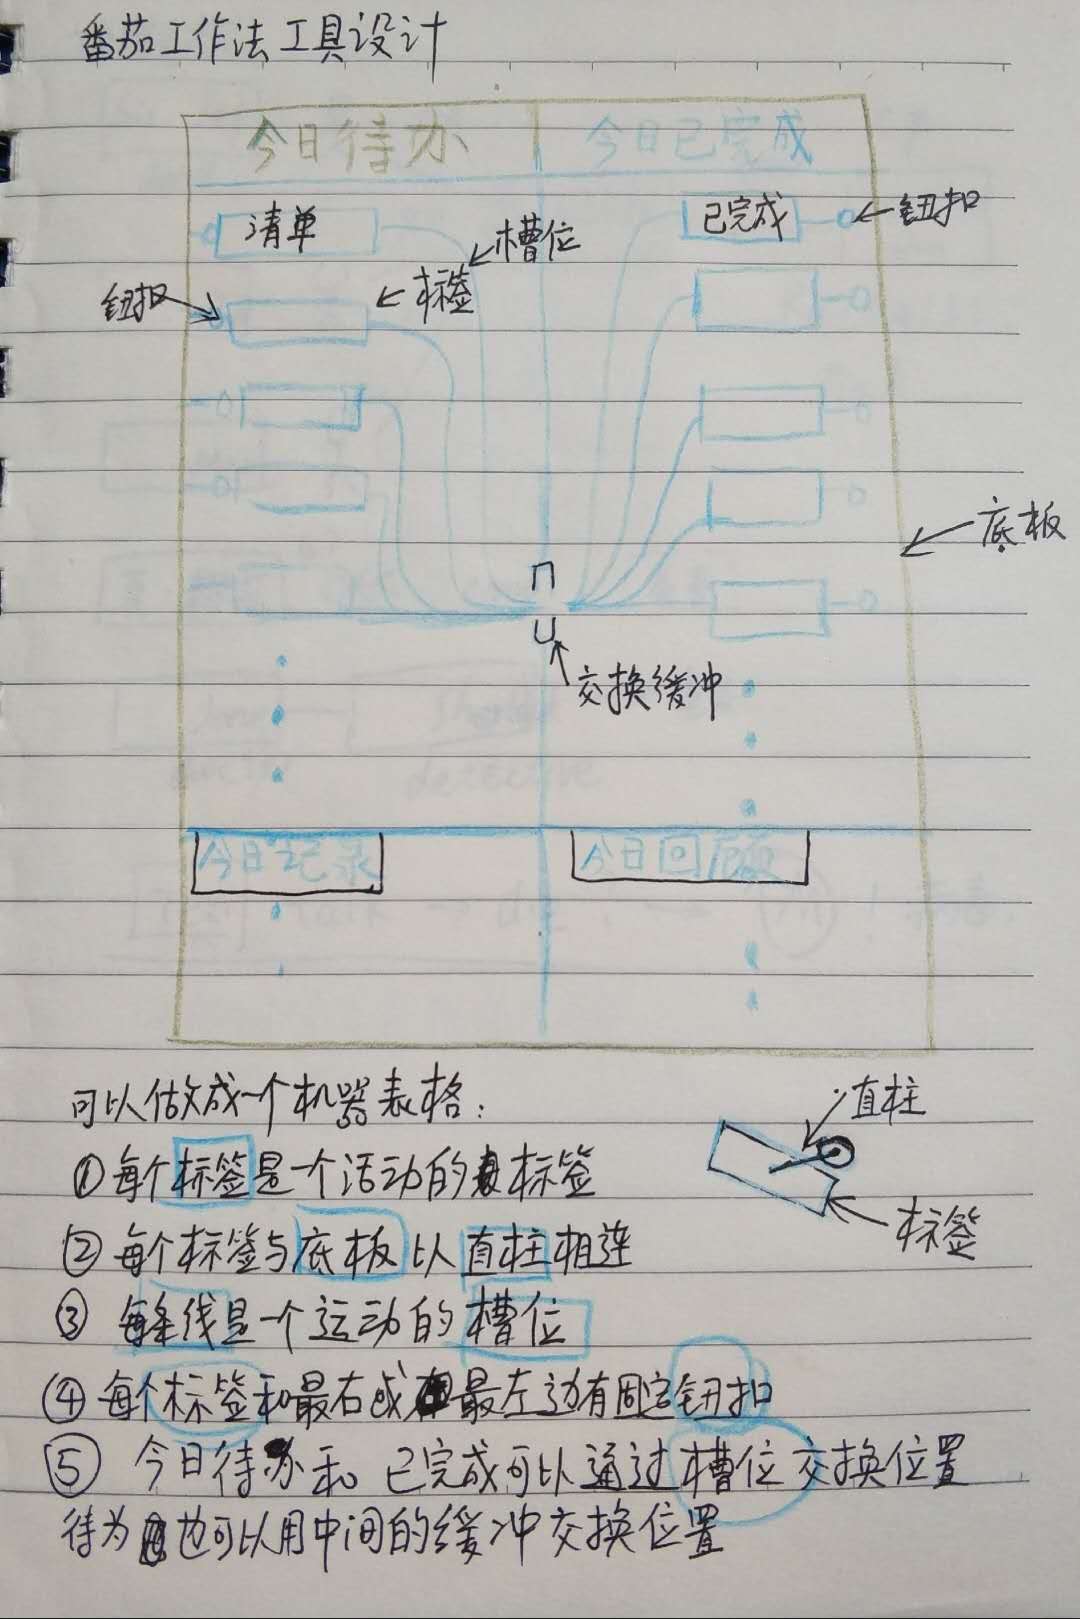 番茄工作法工具设计
今日待办 今日已完成
清单 已完成 钮扣
槽位
标签
钮扣
底板
交换缓冲
今日记录 今日回顾
可以做成一个机器表格:
直柱
①每个标签是一个活动的标签
标签
②每个标签与底板以直柱相连
③每条线是一个运动的槽位
④每个标签和最右或最左边有固定钮扣
⑤今日待办和已完成可以通过槽位交换位置
待为也可以用中间的缓冲交换位置